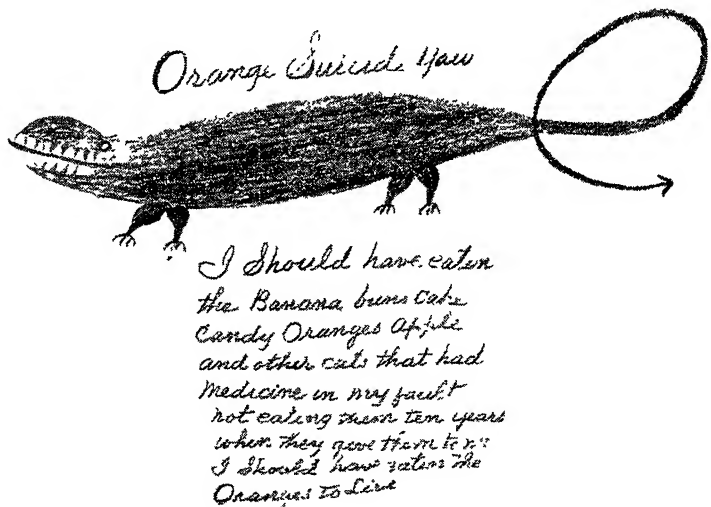 Orange Suicide Yaw
I Should have eaten
the Banana buns Cake
Candy Oranges Apple
and other eats that had
Medicine in my fault
not eating them ten years
when they gave them to
I Should have eaten the
Oranges to Live